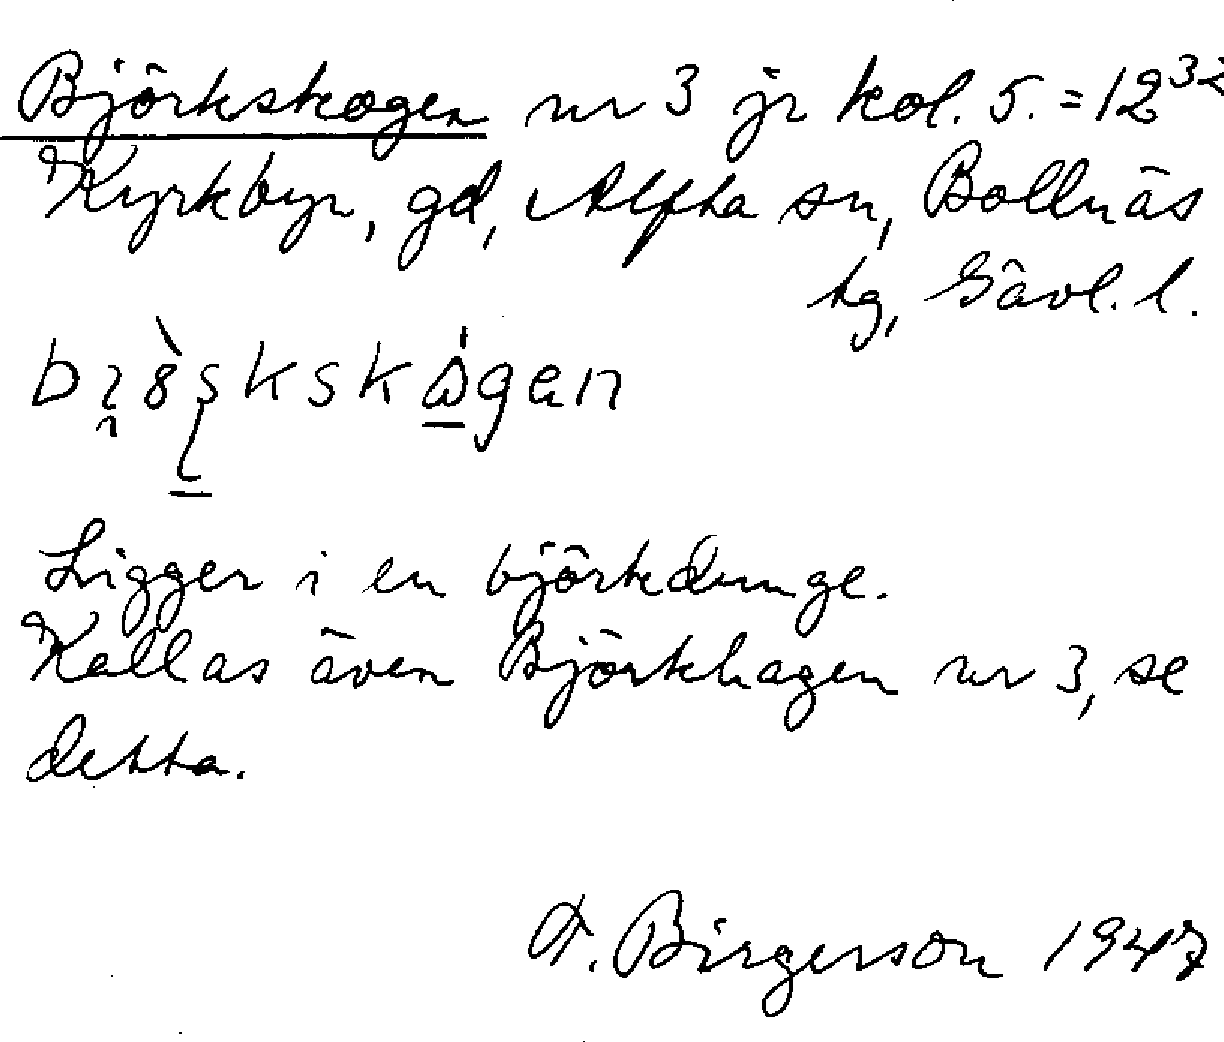 Björkskogen nr 3 jr kol. 5. = 12³²
Kyrkbyn, gd, Alfta sn, Bollnäs
tg, Gävl. l.
Ligger i en björkdunge.
Kallas även Björkhagen nr 3, se
detta.
A. Birgerson 1947